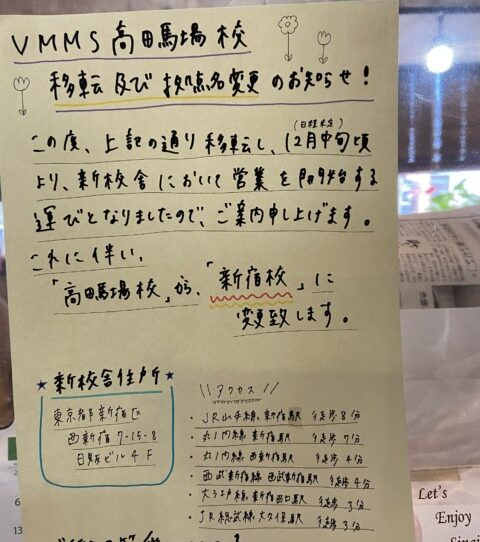 VMMS 高田馬場校
移転及び拠点名変更のお知らせ!
(日程未定)
この度、上記の通り移転し、12月中旬頃
より、新校舎において営業を開始する
運びとなりましたので、ご案内申し上げます。
これに伴い、
「高田馬場校」から、「新宿校」に
変更致します。
★新校舎住所★
東京都新宿区
西新宿7-15-8
日販ビル4F
\\アクセス//
・JR山手線 新宿駅 徒歩8分
・丸ノ内線 新宿駅 徒歩7分
・丸ノ内線 西新宿駅 徒歩4分
・西武新宿線 西武新宿駅 徒歩4分
・大江戸線 新宿西口駅 徒歩3分
・JR総武線 大久保駅 徒歩3分
Let's
Enjoy
6
13